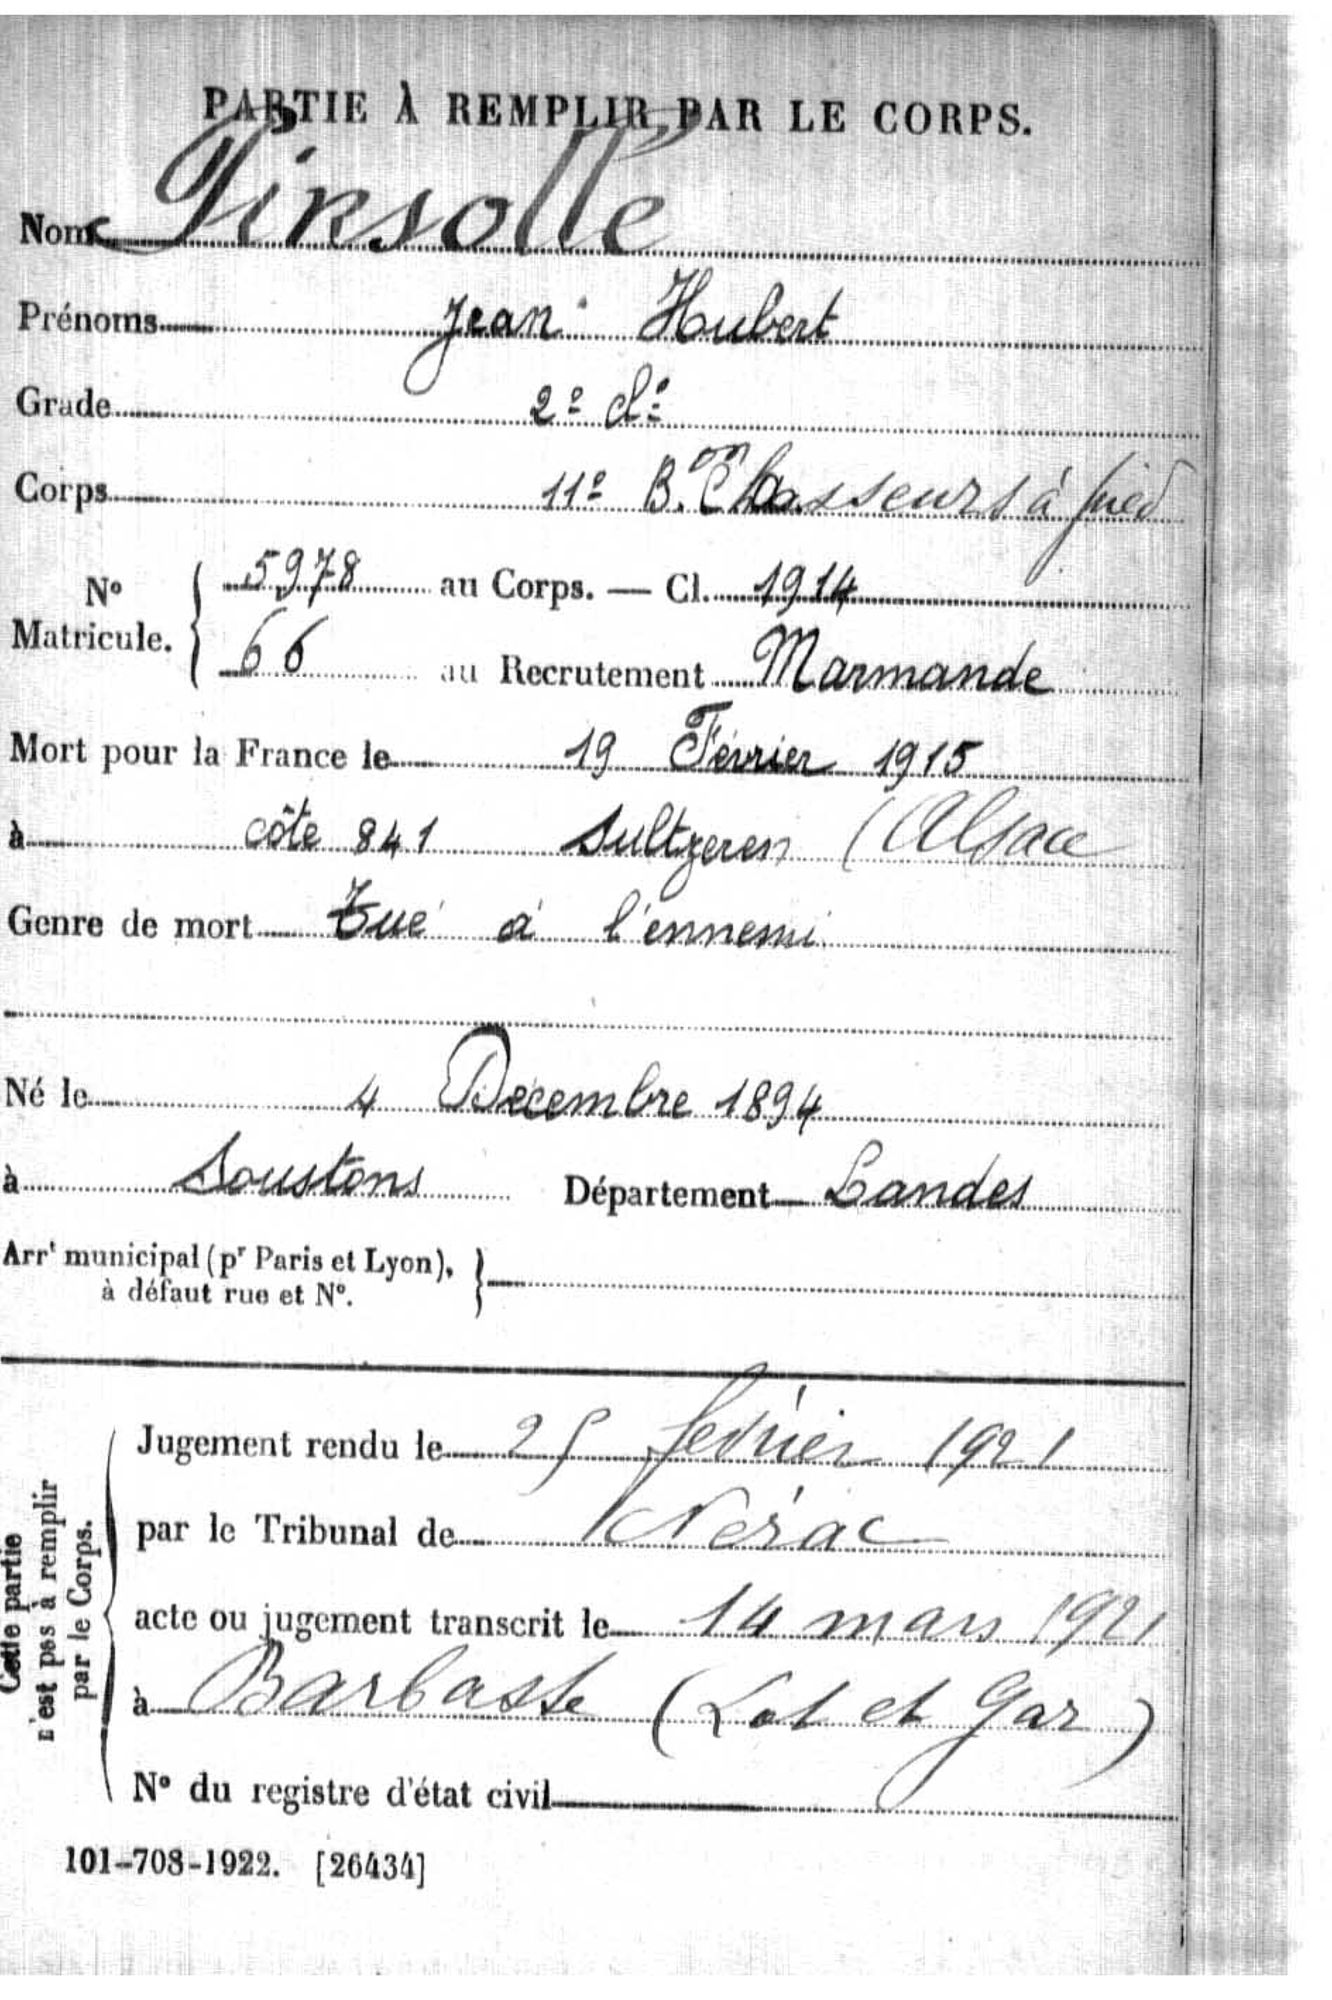 PARTIE À REMPLIR PAR LE CORPS.
Nom Pinsolle
Prénoms Jean Hubert
Grade 2e cl.
Corps 11e B.on Chasseurs à pied
No Matricule. { 5978 au Corps. — Cl. 1914
66 au Recrutement Marmande
Mort pour la France le 19 Février 1915
à côte 841 Sultzeren (Alsace
Genre de mort Tué à l'ennemi
Né le 4 Décembre 1894
à Soustons Département Landes
Arrt municipal (pr Paris et Lyon),
à défaut rue et No.
Cette partie
n'est pas à remplir
par le Corps.
Jugement rendu le 25 février 1921
par le Tribunal de Nérac
acte ou jugement transcrit le 14 mars 1921
à Barbaste (Lot et Gar)
No du registre d'état civil
101-708-1922. [26434]